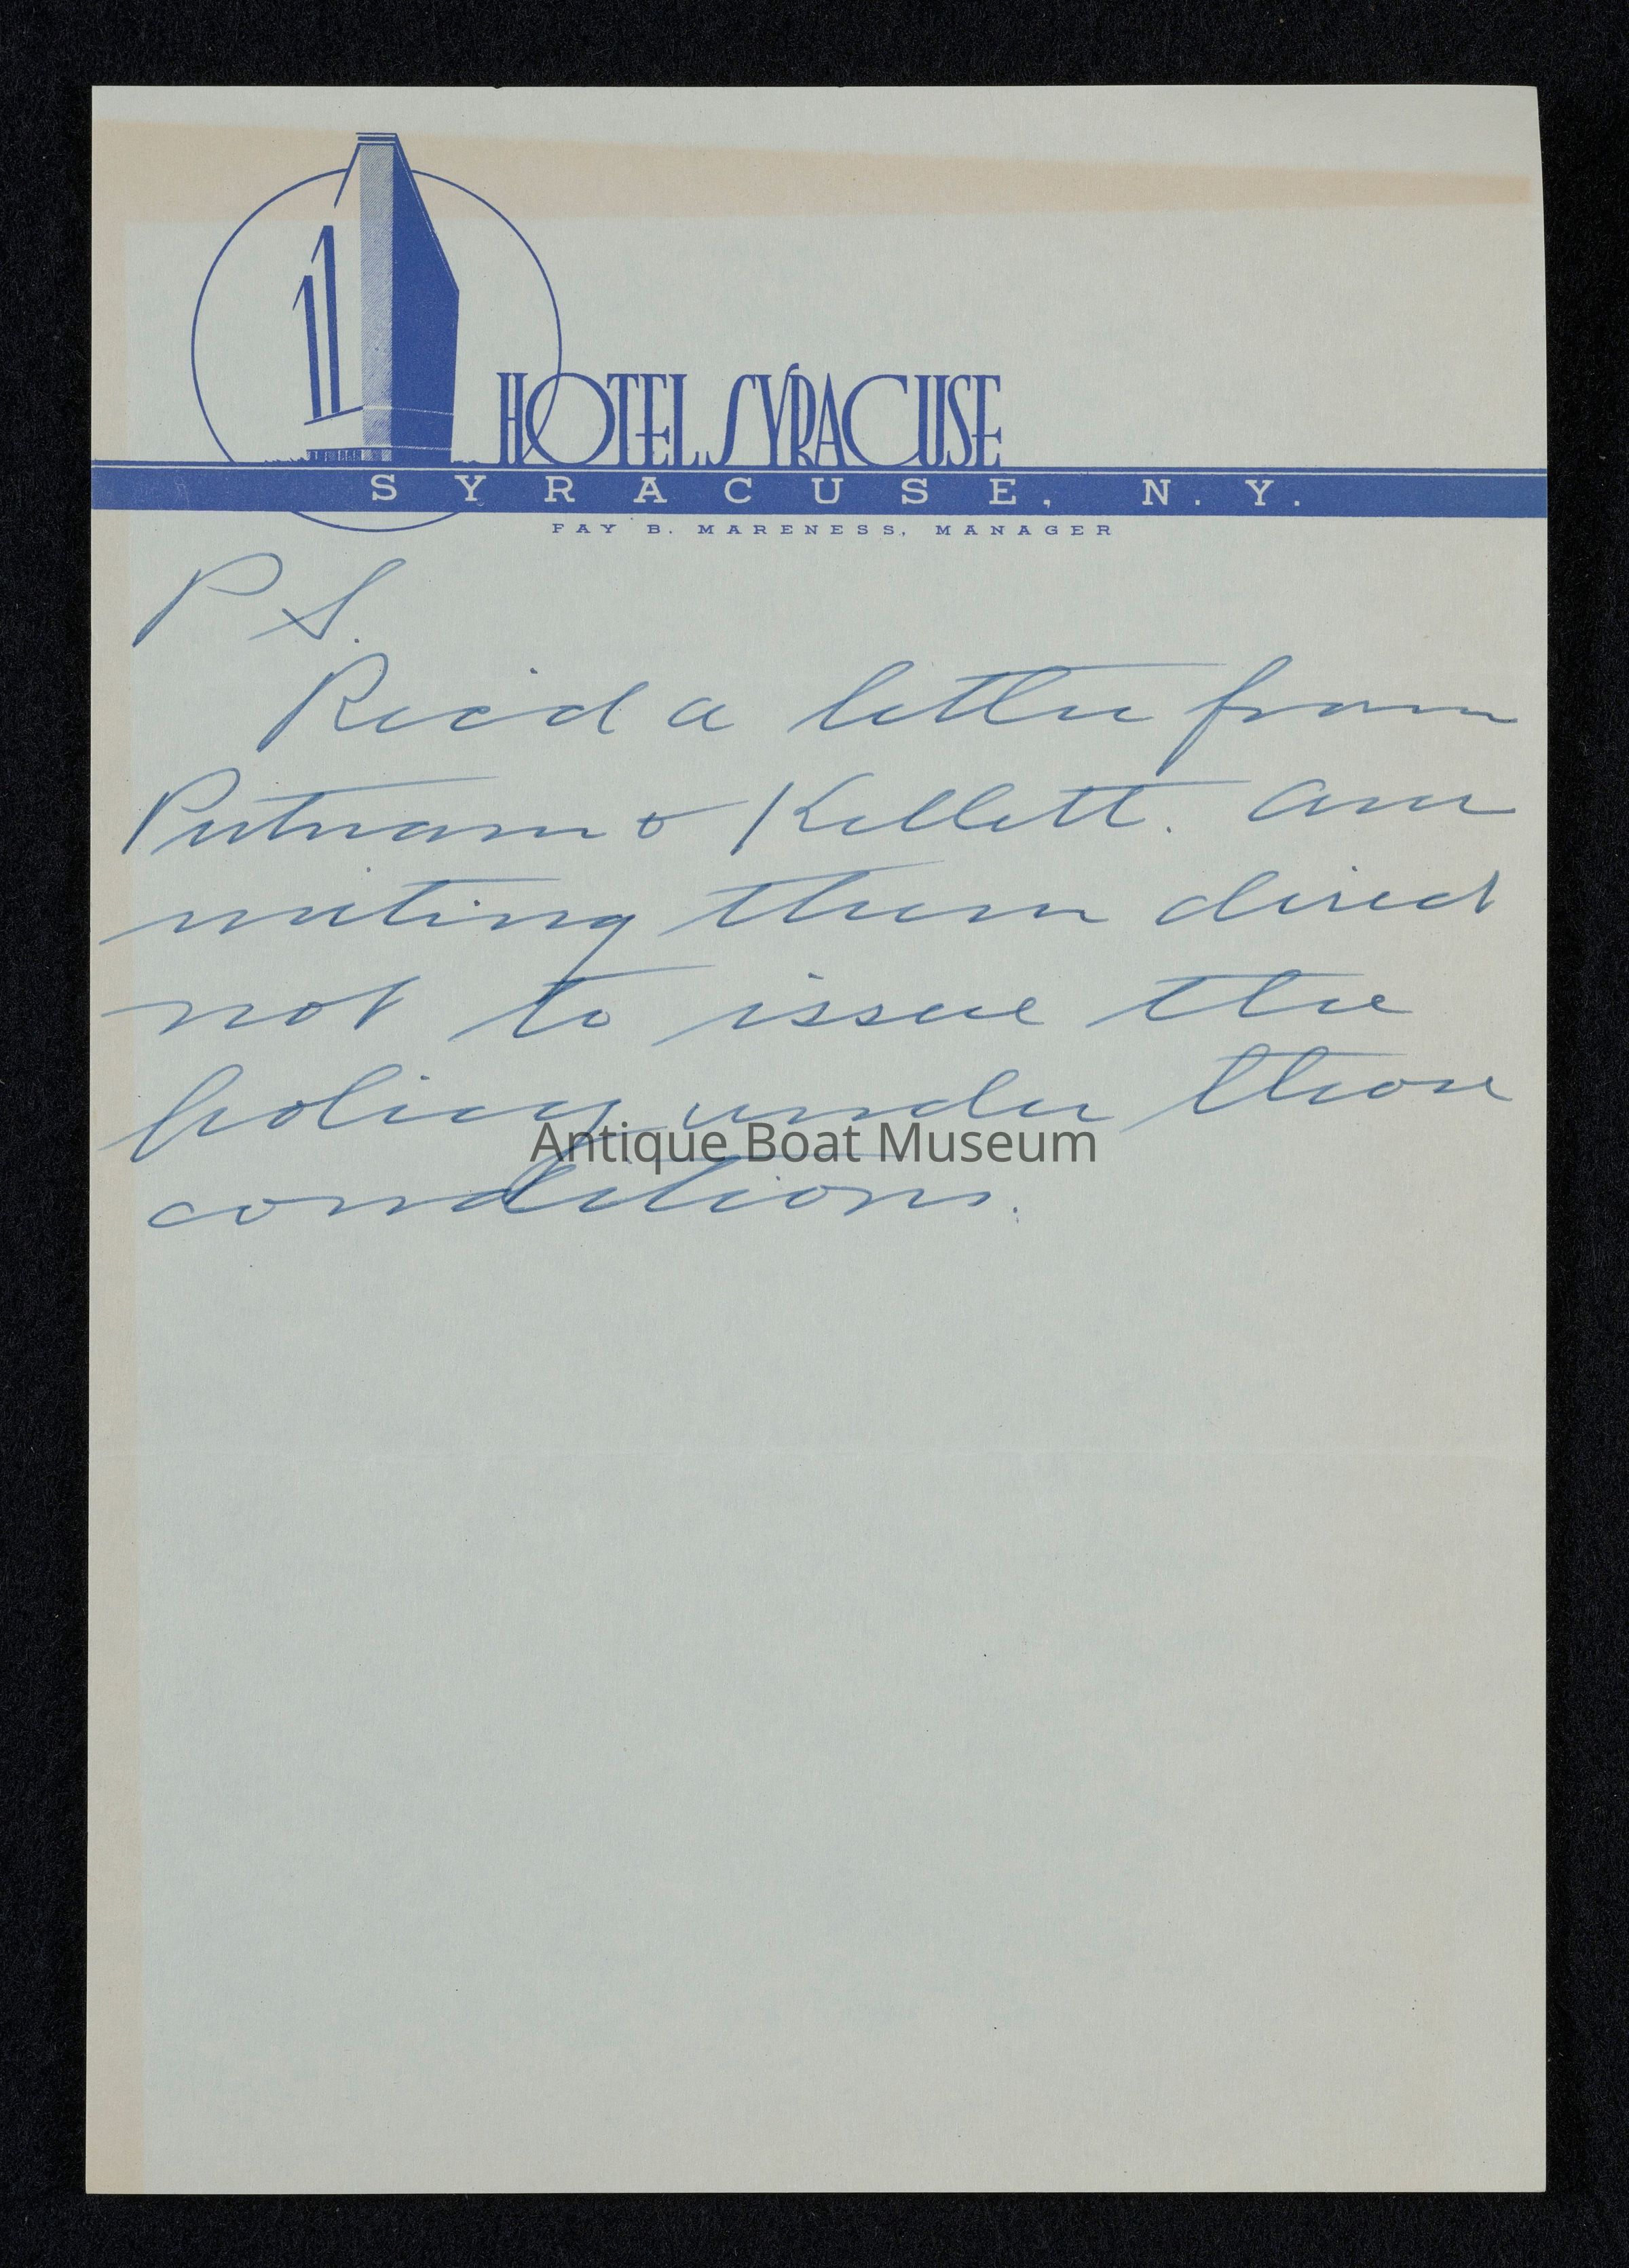 HOTEL SYRACUSE
SYRACUSE, N.Y.
FAY B. MARENESS, MANAGER
P S.
Rec'd a letter from
Putnam & Kellett. am
writing them direct
not to issue the
policy under those
Antique Boat Museum
conditions.